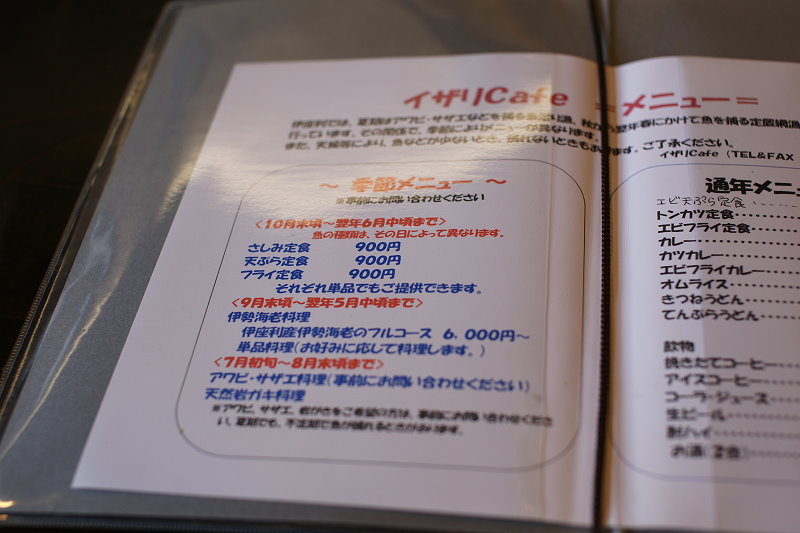 イザリCafe ＝メニュー＝
伊座利では、夏期はアワビ・サザエなどを捕る 漁、秋から翌年春にかけて魚を捕る定置網漁
行っています。その関係で、季節によりメニューが異なります。
また、天候等により、魚などが少ないとき、捕れないときもあります。ご了承ください。
イザリCafe（TEL&FAX
～ 季節メニュー ～
※事前にお問い合わせください
＜10月末頃～翌年6月中頃まで＞
魚の種類は、その日によって異なります。
さしみ定食 900円
天ぷら定食 900円
フライ定食 900円
それぞれ単品でもご提供できます。
＜9月末頃～翌年5月中頃まで＞
伊勢海老料理
伊座利産伊勢海老のフルコース 6,000円～
単品料理（お好みに応じて料理します。）
＜7月初旬～8月末頃まで＞
アワビ・サザエ料理（事前にお問い合わせください）
天然岩ガキ料理
※アワビ、サザエ、岩がきをご希望の方は、事前にお問い合わせくださ
い。夏期でも、不定期で魚が捕れるときがあります。
通年メニュ
エビ天ぷら定食……
トンカツ定食……
エビフライ定食……
カレー……
カツカレー……
エビフライカレー……
オムライス……
きつねうどん……
てんぷらうどん……
飲物
挽きたてコーヒー……
アイスコーヒー……
コーラ・ジュース……
生ビール……
酎ハイ……
お酒（2合）……